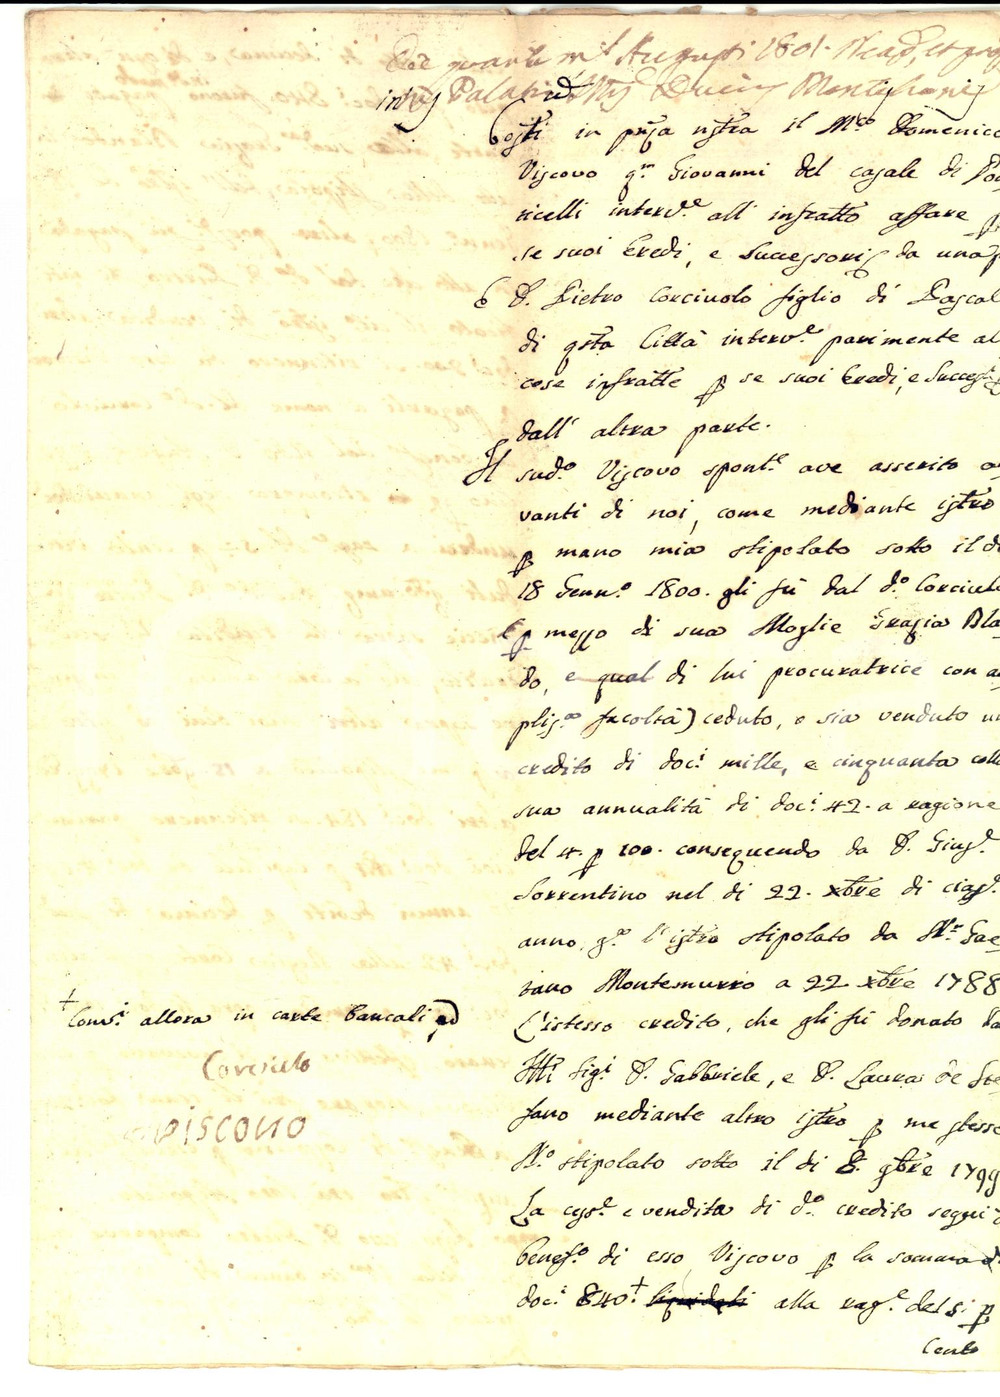 Die quarta m.s Augusti 1801. Neap., et
in Palatio Ducis
Costi in pnza nstra il M.co Domenico
Viscovo q.m Giovanni del casale di Por
ricelli interv.e all' infratto affare p
se suoi Eredi, e Successori da una p
E D. Pietro Corcivolo figlio di Pascal
di qsta Città interv.e parimente al
cose infratte p se suoi Eredi, e Success.i
dall' altra parte.
Il sud.o Viscovo spont.e ave asserito a
vanti di noi, come mediante istro
p mano mia stipolato sotto il dì
18 Genn.o 1800. gli fù dal d.o Corciulo
(p mezzo di sua Moglie Grazia Bla
do, e qual di lui procuratrice con a
pliss.a facoltà) ceduto, o sia venduto un
credito di doc.i mille, e cinquanta colla
sua annualità di doc.i 42. a ragione
del 4. p 100. conseguendo da D. Gius.e
Sorrentino nel dì 22. xbre di ciasc.
anno, g.a l'istro stipolato da N.r Gae
tano Montemurro a 22 xbre 1788
L'istesso credito, che gli fù donato da
Sig.i D. Gabbriele, e D. Laura de Ste
fano mediante altro istro p me stesso
N.o stipolato sotto il dì 8. 9bre 1799
La cess.e e vendita di d.o credito seguì a
benef.o di esso Viscovo p la somma d
doc.i 840.+ liquidati alla rag.e del 5. p
Cento
+ Conv.i allora in carte bancali
Corciulo
viscovo